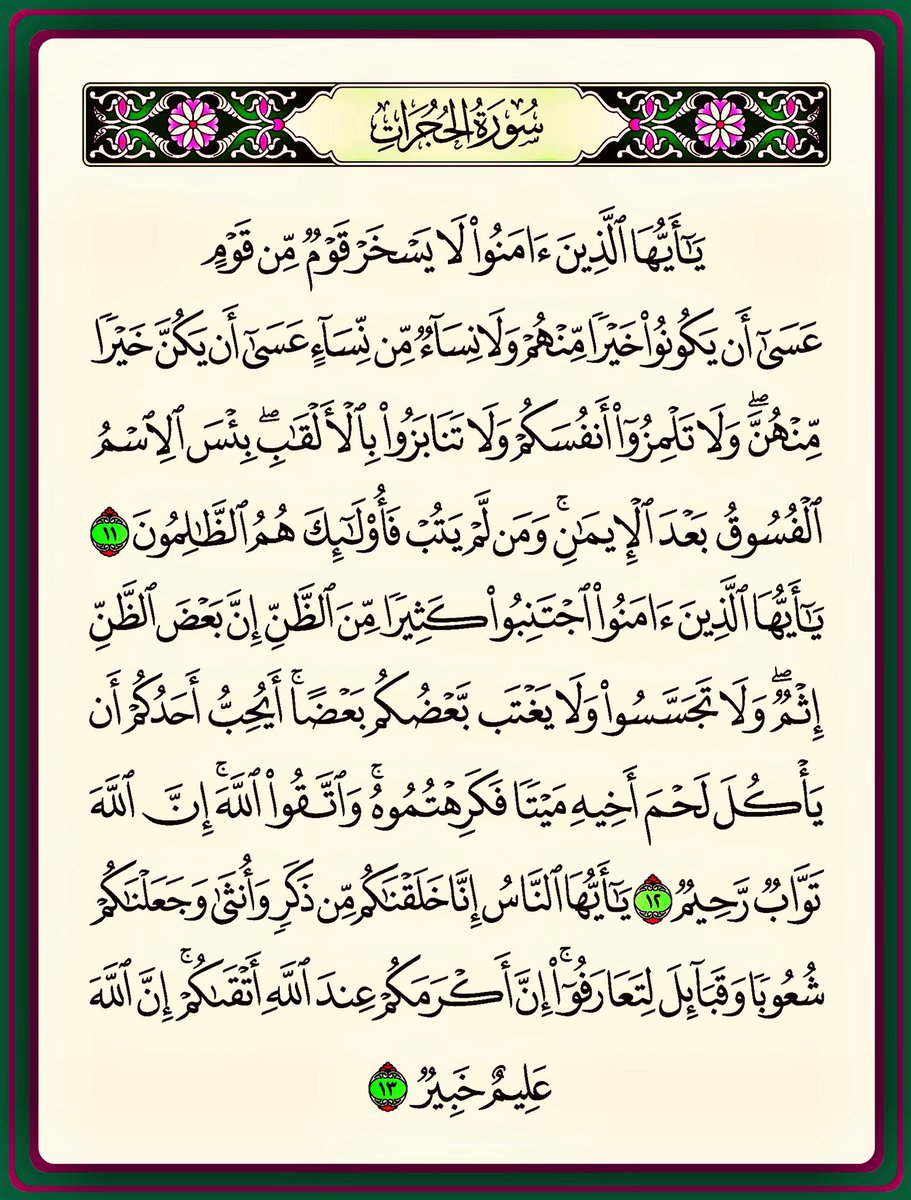 سُورَةُ الحُجُرَاتِ
يَٰٓأَيُّهَا ٱلَّذِينَ ءَامَنُوا۟ لَا يَسْخَرْ قَوْمٌ مِّن قَوْمٍ
عَسَىٰٓ أَن يَكُونُوا۟ خَيْرًا مِّنْهُمْ وَلَا نِسَآءٌ مِّن نِّسَآءٍ عَسَىٰٓ أَن يَكُنَّ خَيْرًا
مِّنْهُنَّ ۖ وَلَا تَلْمِزُوٓا۟ أَنفُسَكُمْ وَلَا تَنَابَزُوا۟ بِٱلْأَلْقَٰبِ ۖ بِئْسَ ٱلِٱسْمُ
ٱلْفُسُوقُ بَعْدَ ٱلْإِيمَٰنِ ۚ وَمَن لَّمْ يَتُبْ فَأُو۟لَٰٓئِكَ هُمُ ٱلظَّٰلِمُونَ ١١
يَٰٓأَيُّهَا ٱلَّذِينَ ءَامَنُوا۟ ٱجْتَنِبُوا۟ كَثِيرًا مِّنَ ٱلظَّنِّ إِنَّ بَعْضَ ٱلظَّنِّ
إِثْمٌ ۖ وَلَا تَجَسَّسُوا۟ وَلَا يَغْتَب بَّعْضُكُم بَعْضًا ۚ أَيُحِبُّ أَحَدُكُمْ أَن
يَأْكُلَ لَحْمَ أَخِيهِ مَيْتًا فَكَرِهْتُمُوهُ ۚ وَٱتَّقُوا۟ ٱللَّهَ ۚ إِنَّ ٱللَّهَ
تَوَّابٌ رَّحِيمٌ ١٢ يَٰٓأَيُّهَا ٱلنَّاسُ إِنَّا خَلَقْنَٰكُم مِّن ذَكَرٍ وَأُنثَىٰ وَجَعَلْنَٰكُمْ
شُعُوبًا وَقَبَآئِلَ لِتَعَارَفُوٓا۟ ۚ إِنَّ أَكْرَمَكُمْ عِندَ ٱللَّهِ أَتْقَىٰكُمْ ۚ إِنَّ ٱللَّهَ
عَلِيمٌ خَبِيرٌ ١٣